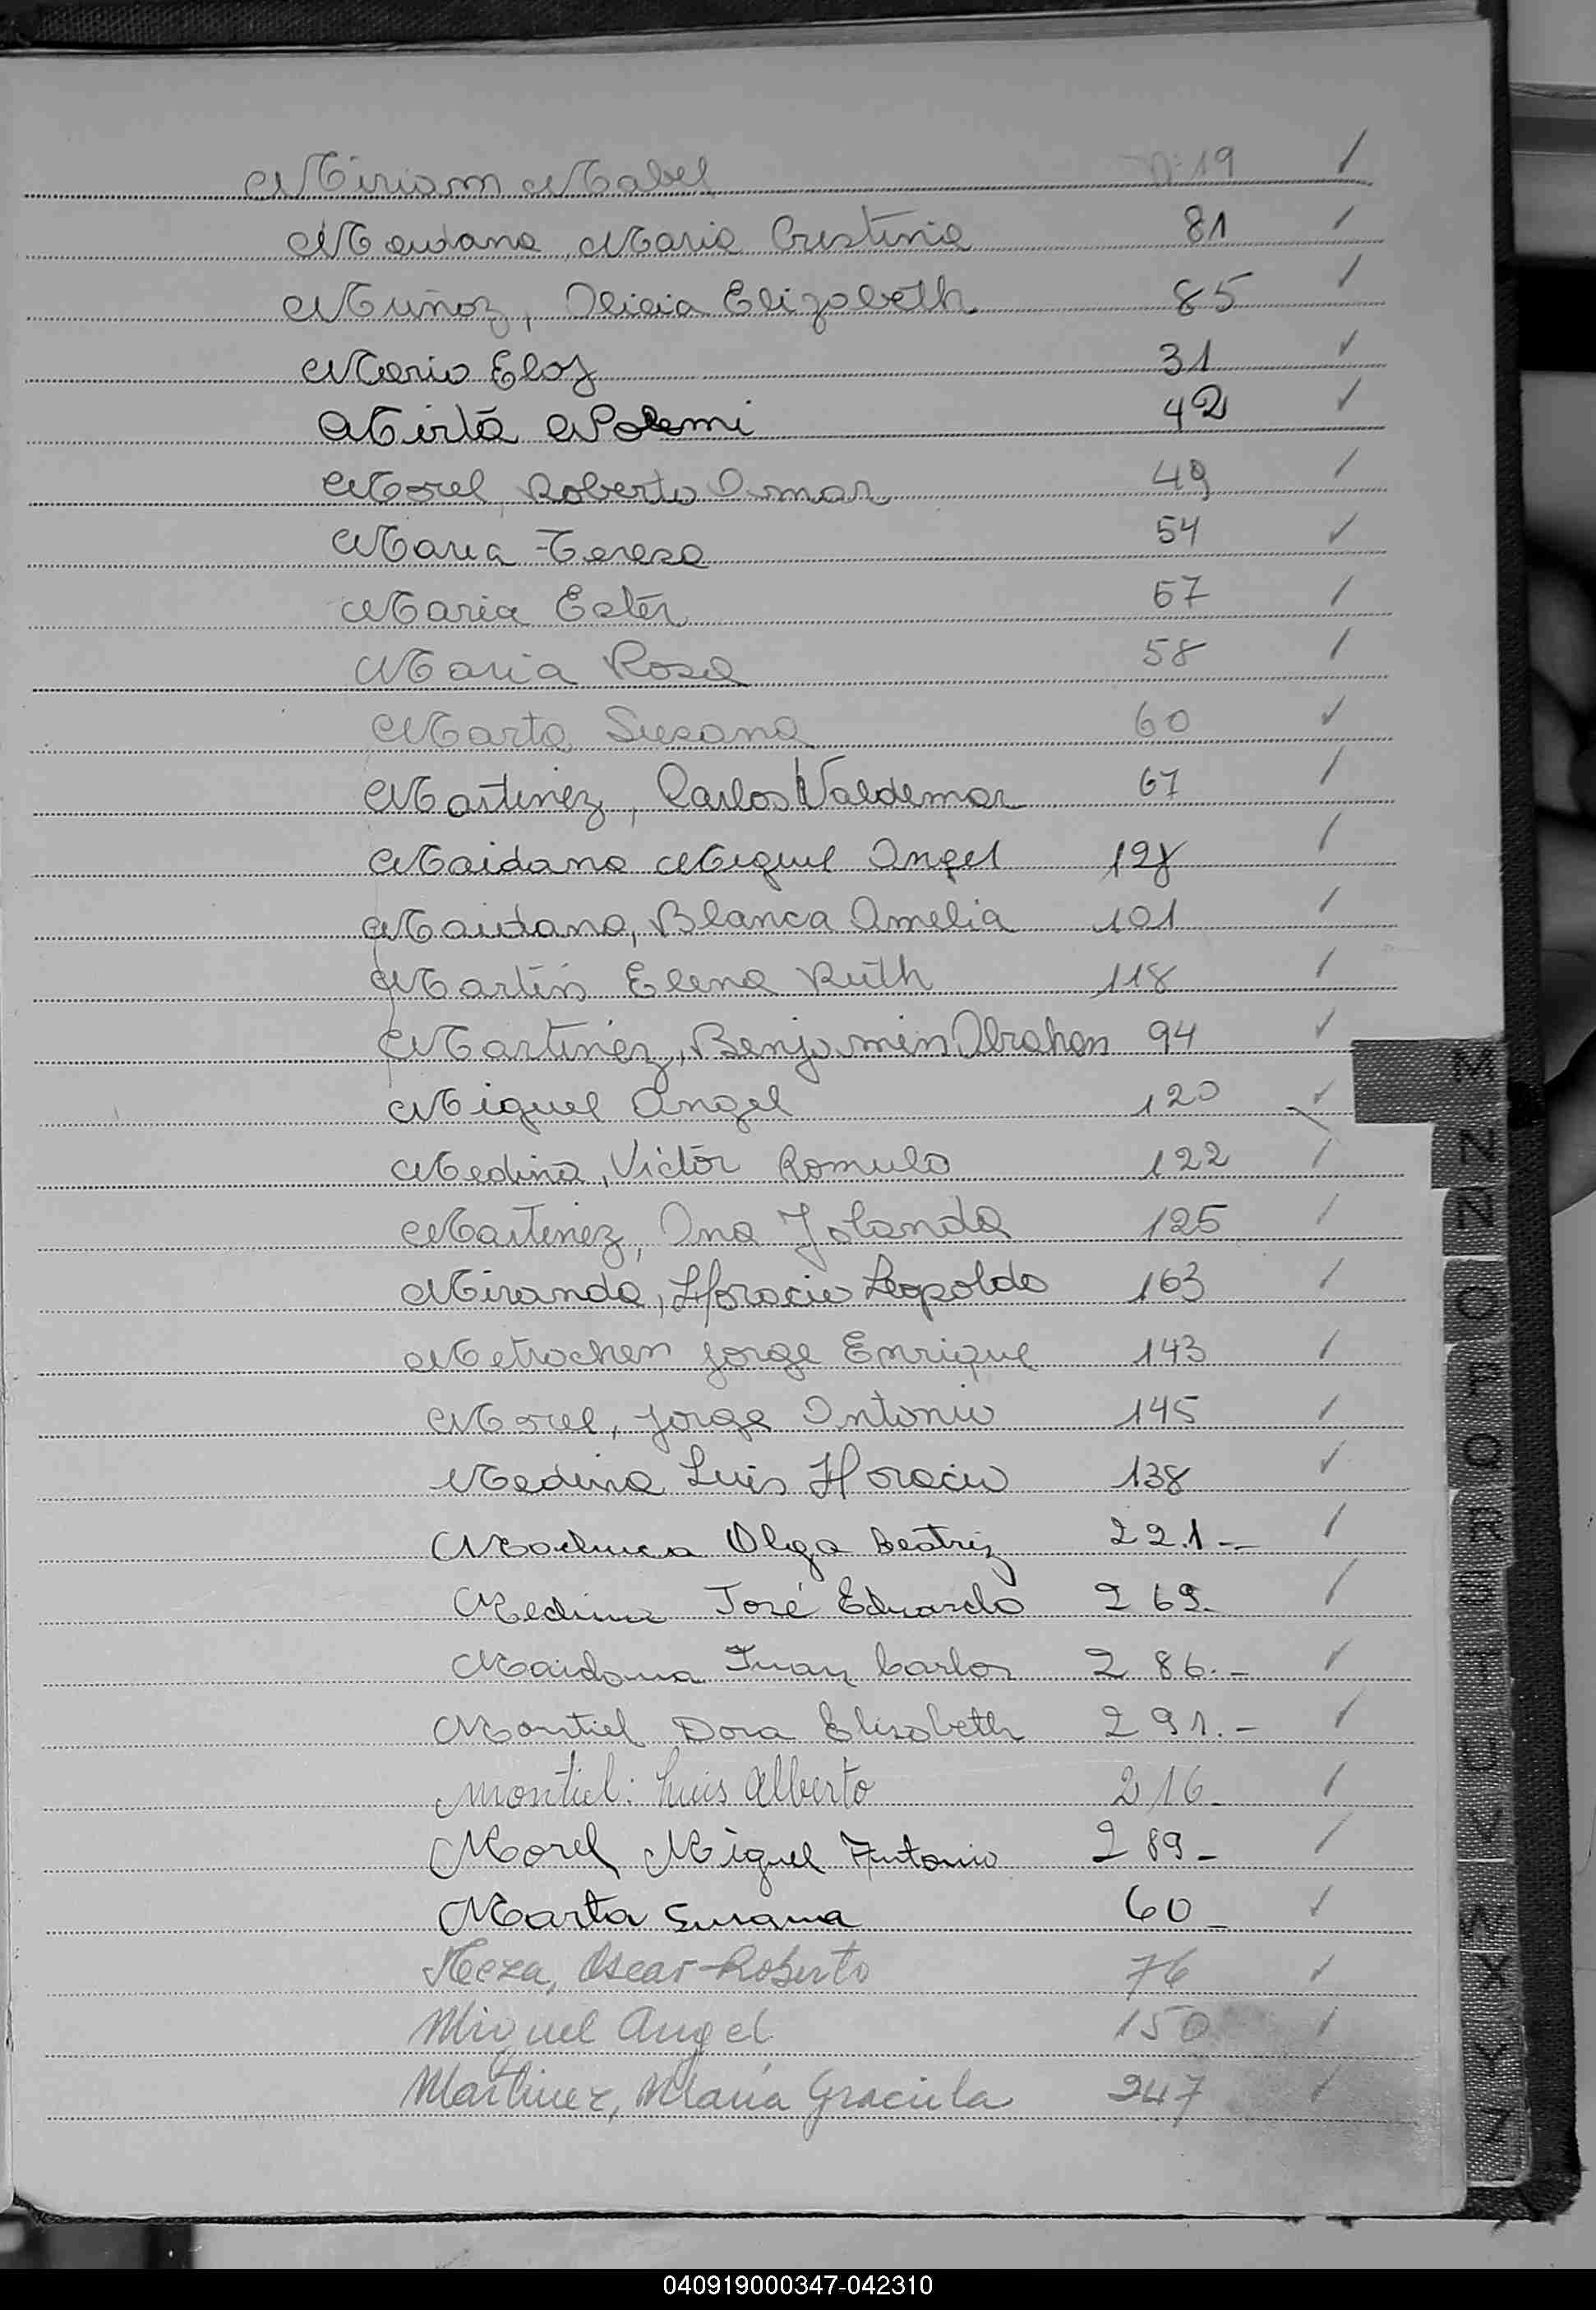 Miriam Mabel Nº 19
Maidana, Maria Cristina 81
Muñoz, Alicia Elizabeth 85
Mario Eloy 31
Mirta Noemi 42
Morel, Roberto Omar 49
Maria Teresa 54
Maria Ester 57
Maria Rosa 58
Marta Susana 60
Martinez, Carlos Valdemar 67
Maidana Miguel Angel 128
Maidana, Blanca Amelia 101
Martin Elena Ruth 118
Martinez, Benjamin Abraham 94
Miguel Angel 120
Medina, Victor Romulo 122
Martinez, Ana Yolanda 125
Miranda, Horacio Leopoldo 163
Metrochen Jorge Enrique 143
Morel, Jorge Antonio 145
Medina Luis Horacio 138
Machuca Olga Beatriz 221.-
Medina José Eduardo 269.
Maidana Juan Carlos 286.-
Montiel Dora Elisabeth 291.-
Montiel: Luis Alberto 216-
Morel Miguel Antonio 289-
Marta Susana 60-
Meza, Oscar Roberto 76
Miguel Angel 150
Martinez, María Graciela 247
M
N
Ñ
O
P
Q
R
S
T
U
V
W
X
Y
Z
040919000347-042310